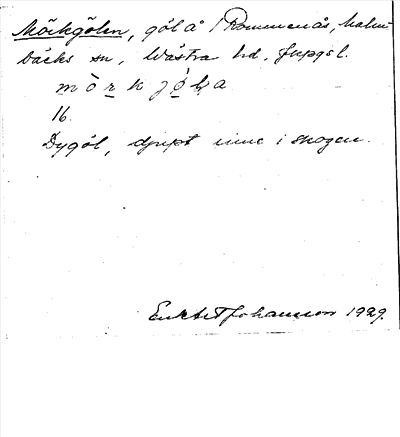 Mörkgölen, göl å Rommenås, Malm-
bäcks sn, Västra hd, Jkpgs l.
mörkjöḷa
16.
Dygöl, djupt inne i skogen.
Johansson 1929.